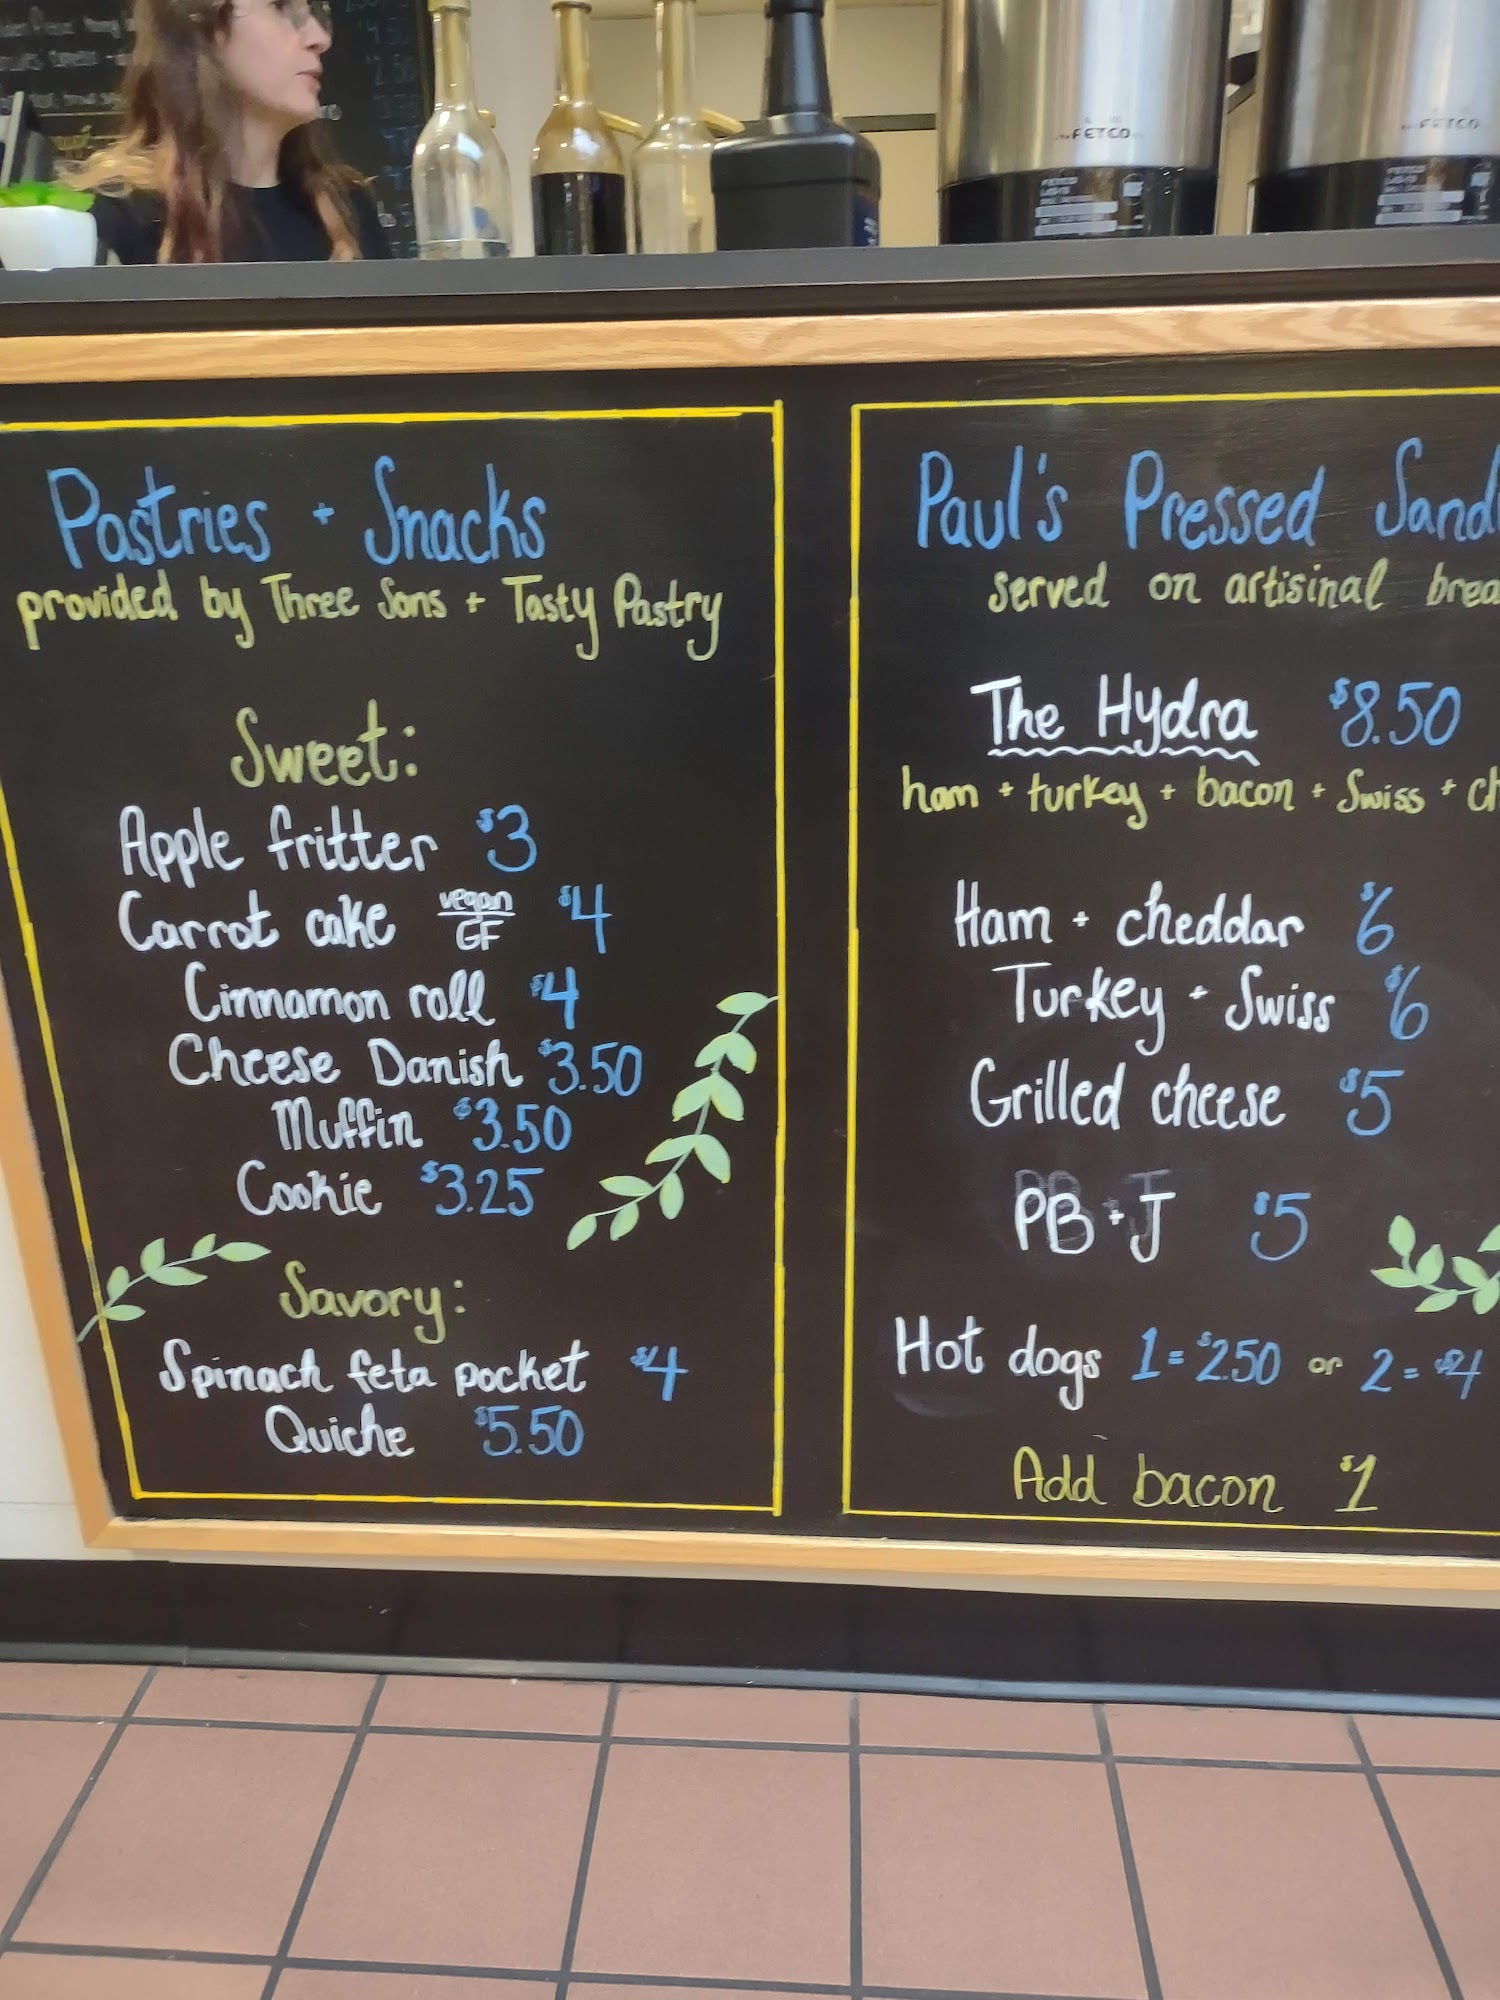 FETCO
FETCO
Pastries + Snacks
provided by Three Sons + Tasty Pastry
Sweet:
Apple fritter $3
Carrot cake vegan GF $4
Cinnamon roll $4
Cheese Danish $3.50
Muffin $3.50
Cookie $3.25
Savory:
Spinach feta pocket $4
Quiche $5.50
Paul's Pressed Sand
served on artisinal brea
The Hydra $8.50
ham + turkey + bacon + Swiss + ch
Ham + cheddar $6
Turkey + Swiss $6
Grilled cheese $5
PB + J $5
Hot dogs 1 = $2.50 or 2 = $4
Add bacon $1